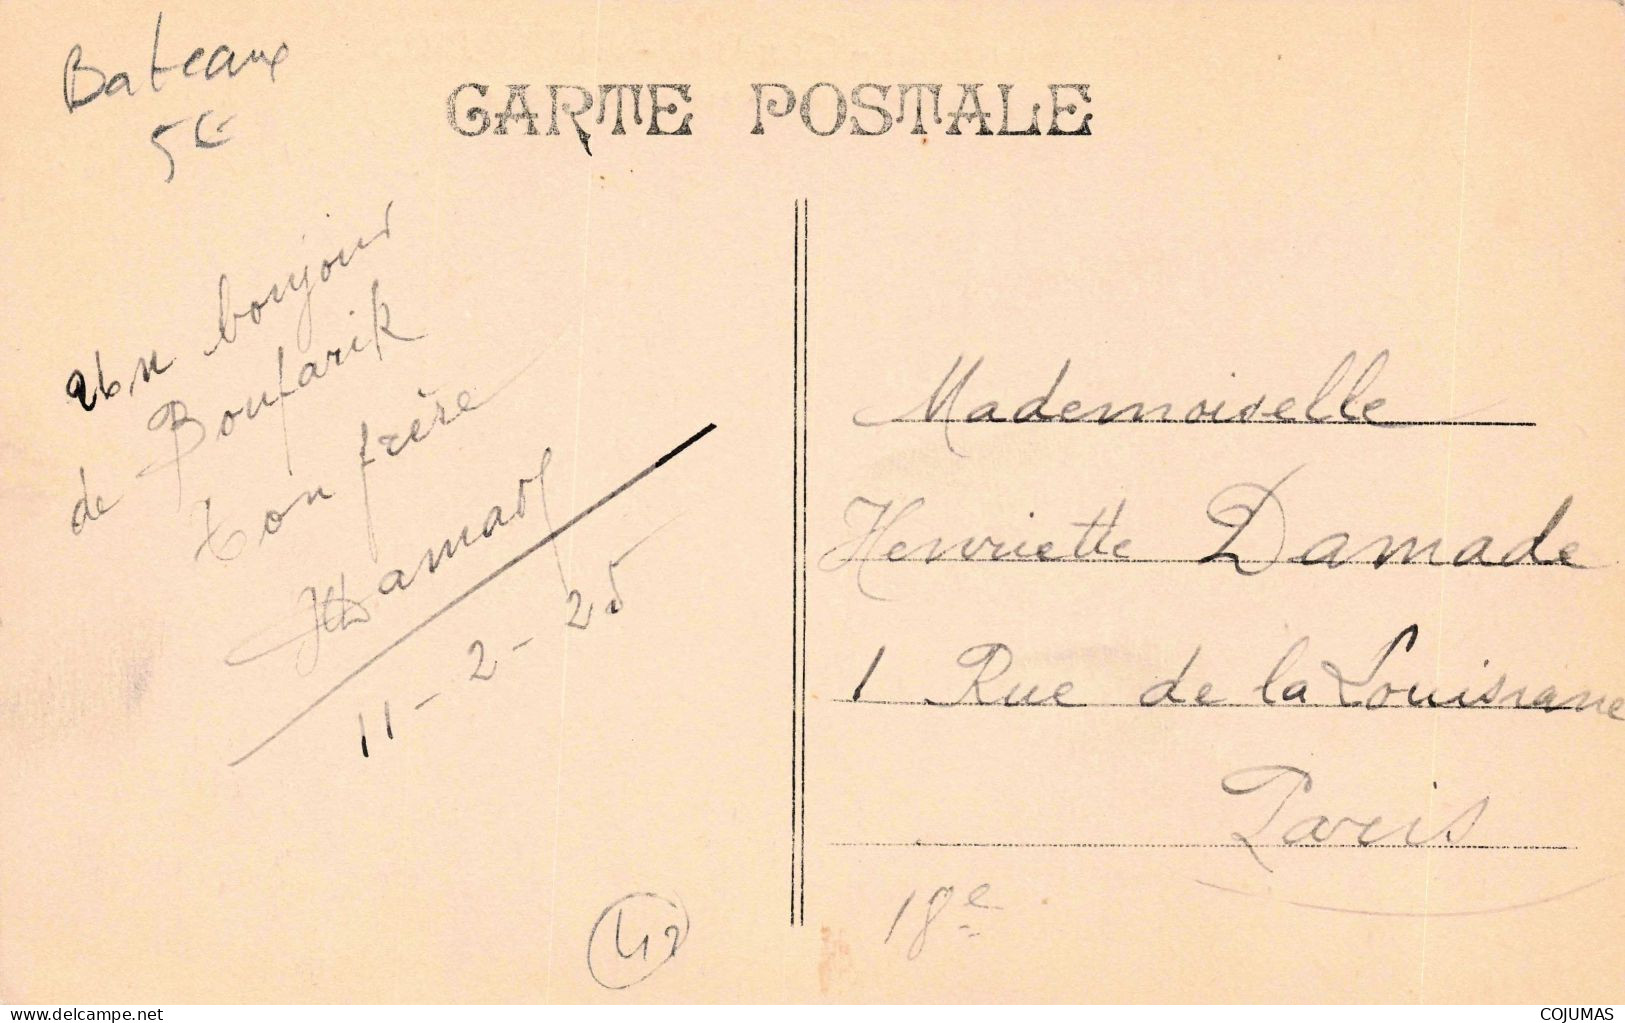 Bateaux
5€
CARTE POSTALE
Un bonjour
de Boufarik
ton frère
11-2-25
Mademoiselle
Henriette Damade
1 Rue de la Louisiane
Paris
18e
42
delcampe.net
COJUMAS